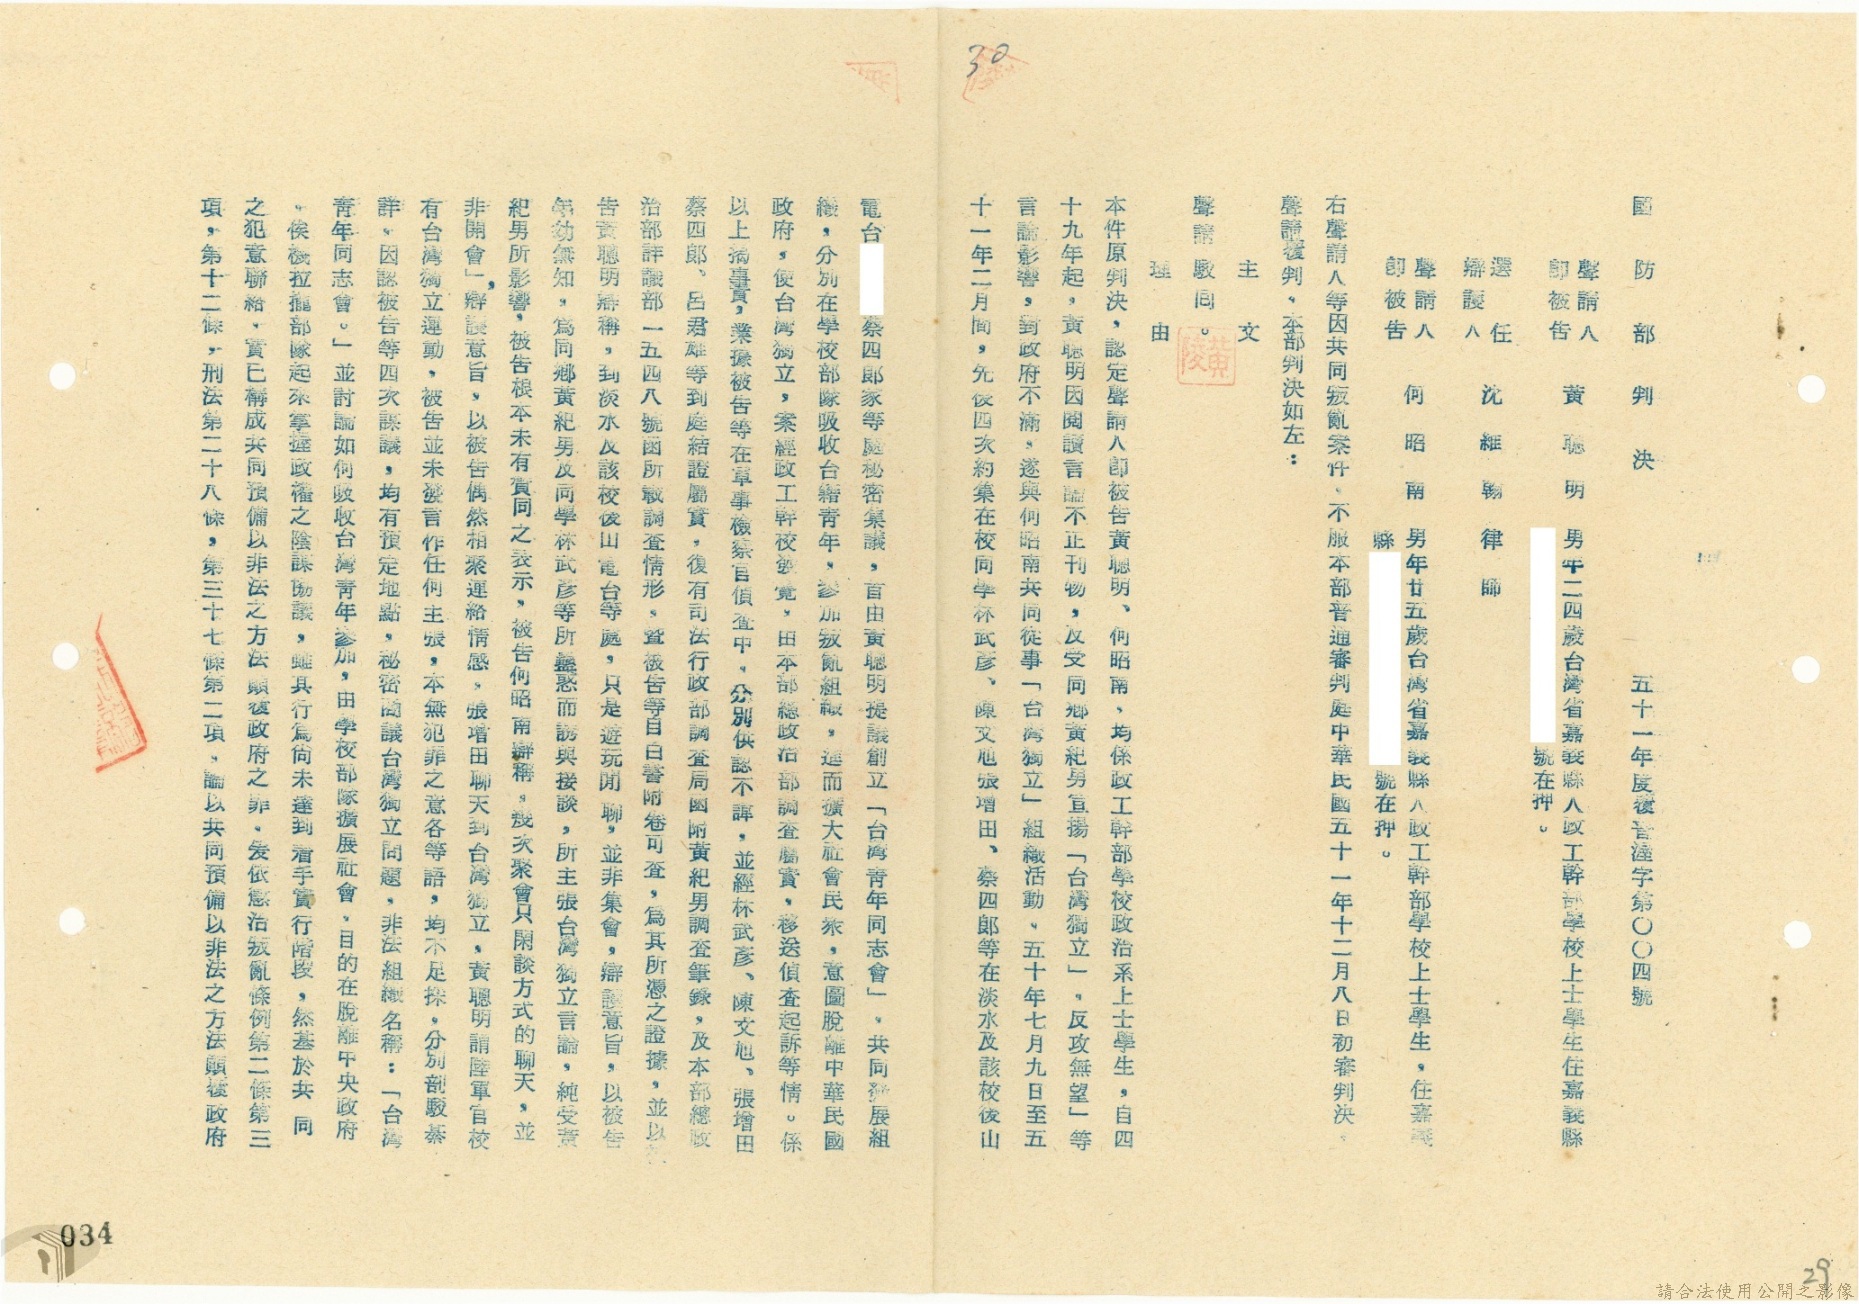 國防部判決 五十一年度覆普淒字第〇〇四號
聲請人
即被告 黃聰明 男年二四歲台灣省嘉義縣人政工幹部學校上士學生住嘉義縣
號在押。
選任
辯護人 沈維翰律師
聲請人
即被告 何昭南 男年廿五歲台灣省嘉義縣人政工幹部學校上士學生,住嘉義
縣 號在押。
右聲請人等因共同叛亂案件、不服本部普通審判庭中華民國五十一年十二月八日初審判決、
聲請覆判、本部判決如左:
主文
聲請駁回。
理由
本件原判決,認定聲請人即被告黃聰明、何昭南、均係政工幹部學校政治系上士學生,自四
十九年起,黃聰明因閱讀言論不正刊物,及受同鄉黃紀男宣揚「台灣獨立」,反攻無望」等
言論影響,對政府不滿,遂與何昭南共同從事「台灣獨立」組織活動。五十年七月九日至五
十一年二月間,先後四次約集在校同學林武彥、陳文旭張增田、蔡四郎等在淡水及該校後山
電台 蔡四郎家等處秘密集議,首由黃聰明提議創立「台灣青年同志會」,共同發展組
織,分別在學校部隊吸收台籍青年,參加叛亂組織,進而擴大社會民眾,意圖脫離中華民國
政府,使台灣獨立,案經政工幹校發覺,由本部總政治部調查屬實,移送偵查起訴等情。係
以上揭事實,業據被告等在軍事檢察官偵查中,分別供認不諱,並經林武彥、陳文旭、張增田
蔡四郎、呂君雄等到庭結證屬實,復有司法行政部調查局函附黃紀男調查筆錄,及本部總政
治部詳議部一五四八號函所載調查情形,暨被告等自白書附卷可查,為其所憑之證據,並以
告黃聰明辯稱,到淡水及該校後山電台等處,只是遊玩閒聊,並非集會,辯護意旨,以被告
年幼無知,為同鄉黃紀男及同學林武彥等所蠱惑而誘與接談,所主張台灣獨立言論,純受黃
紀男所影響,被告根本未有贊同之表示,被告何昭南辯稱,幾次聚會只閑談方式的聊天,並
非開會」,辯護意旨,以被告偶然相聚連絡情感,張增田聊天到台灣獨立,黃聰明謂陸軍官校
有台灣獨立運動,被告並未發言作任何主張,本無犯罪之意各等語,均不足採,分別剖駁綦
詳。因認被告等四次謀議,均有預定地點,秘密商議台灣獨立問題,非法組織名稱:「台灣
青年同志會。」並討論如何吸收台灣青年參加,由學校部隊擴展社會,目的在脫離中央政府
,俟機拉攏部隊起來掌握政權之陰謀協議,雖其行為尚未達到着手實行階段,然基於共同
之犯意聯絡,實已構成共同預備以非法之方法顛覆政府之罪,爰依懲治叛亂條例第二條第三
項,第十二條,刑法第二十八條,第三十七條第二項,論以共同預備以非法之方法顛覆政府
30
黃陵
034
29
請合法使用公開之影像